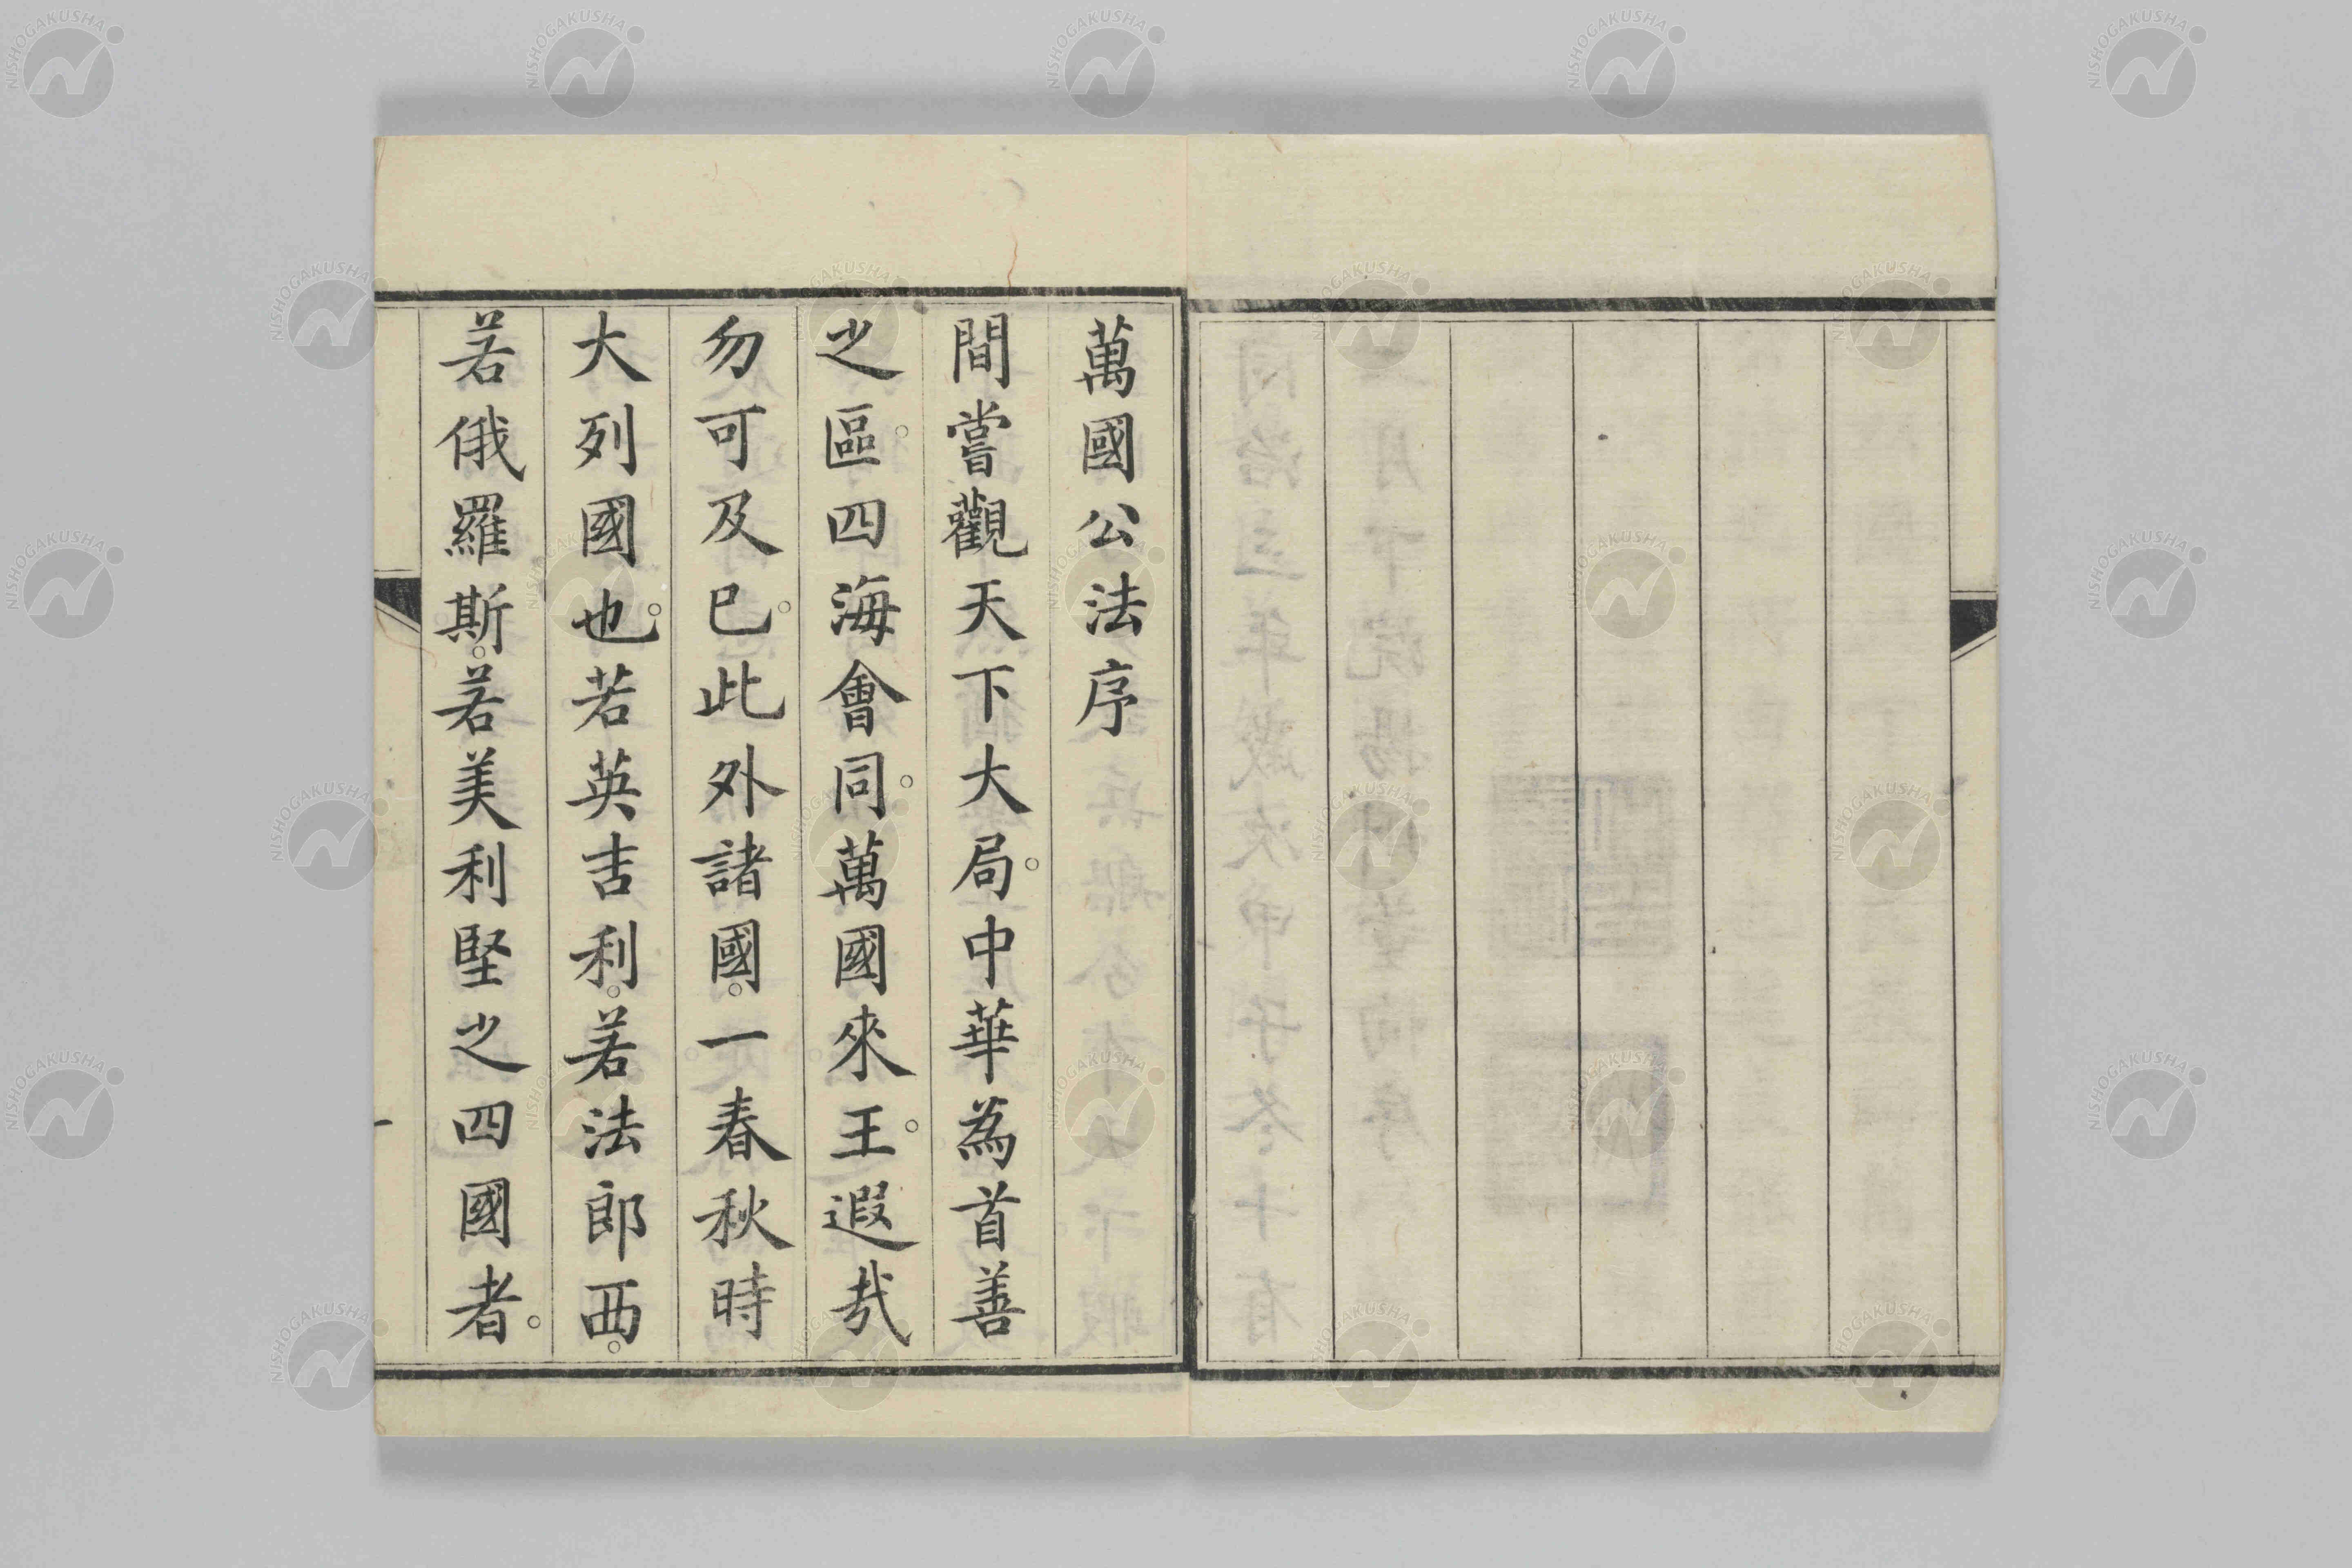 萬國公法序
間嘗觀天下大局。中華為首善
之區。四海會同。萬國來王。遐哉
勿可及已。此外諸國。一春秋時
大列國也。若英吉利。若法郎西。
若俄羅斯。若美利堅之四國者。
一
NISHOGAKUSHA